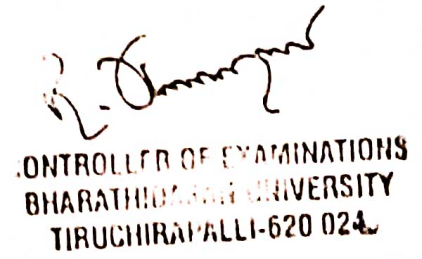 CONTROLLER OF EXAMINATIONS
BHARATHIDASAN UNIVERSITY
TIRUCHIRAPALLI-620 024.